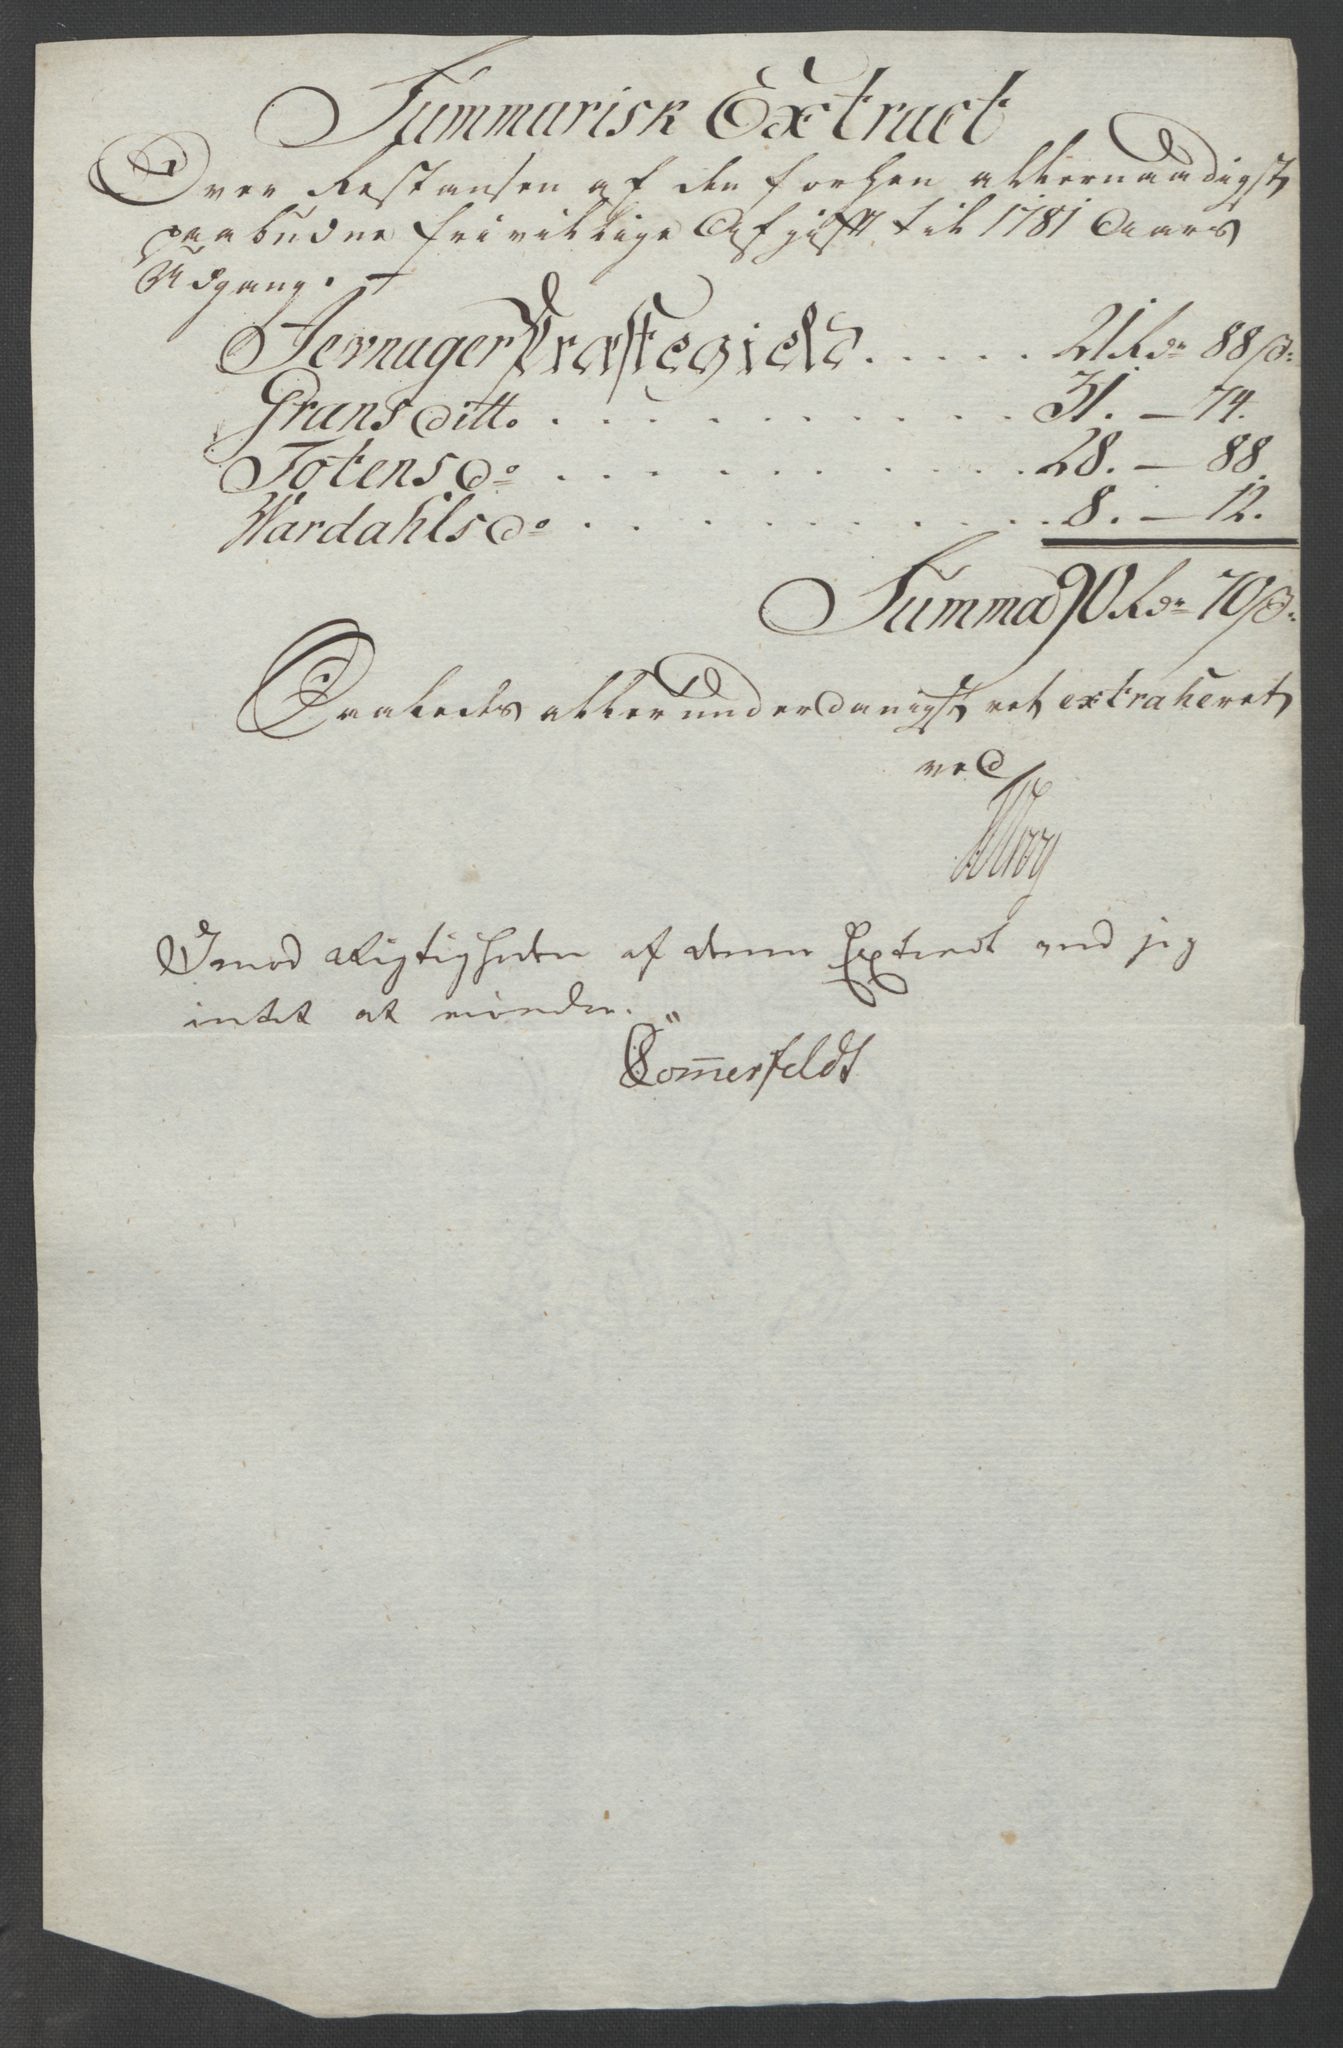 Summarisk Extract
Over Restansen af den forhen allernaadigst
paabudne frivillige Afgift til 1781 Aars
Udgang.
Jevnager Præstegield . . . . . 21 Rdr 88 s:
Grans ditto . . . . . . . . . . 31. — 74.
Totens do . . . . . . . . . . 28. — 88.
Wardahls do . . . . . . . . . . 8. — 12.
Summa 90 Rdr 70 s:
Saaledes allerunderdanigst ret extraheret
ved
Imod Rigtigheden af denne Extract ved jeg
intet at erindre.
Sommerfeldt